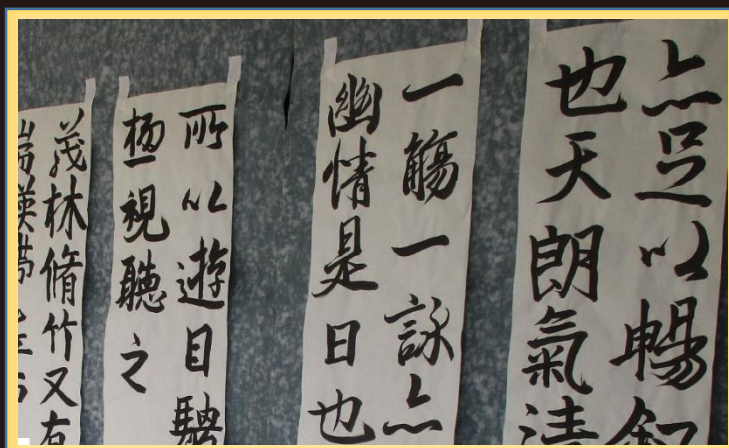 亦足以暢叙
也天朗氣清
一觴一詠亦
幽情是日也
所以遊目騁
極視聽之
茂林脩竹又有